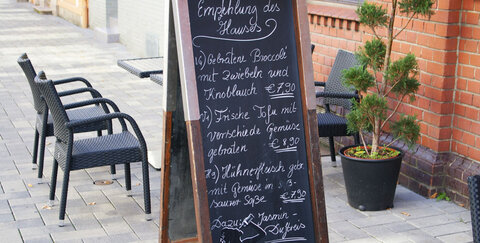 Empfehlung des
Hauses
Gebratene Broccoli
mit Zwiebeln und
Knoblauch € 7,90
Frische Tofu mit
verschiede Gemüse
gebraten € 8,90
Hühnerfleisch geb.
mit Gemüse in S-
saurer Soße € 7,90
Dazu: Jasmin-
Duftreis